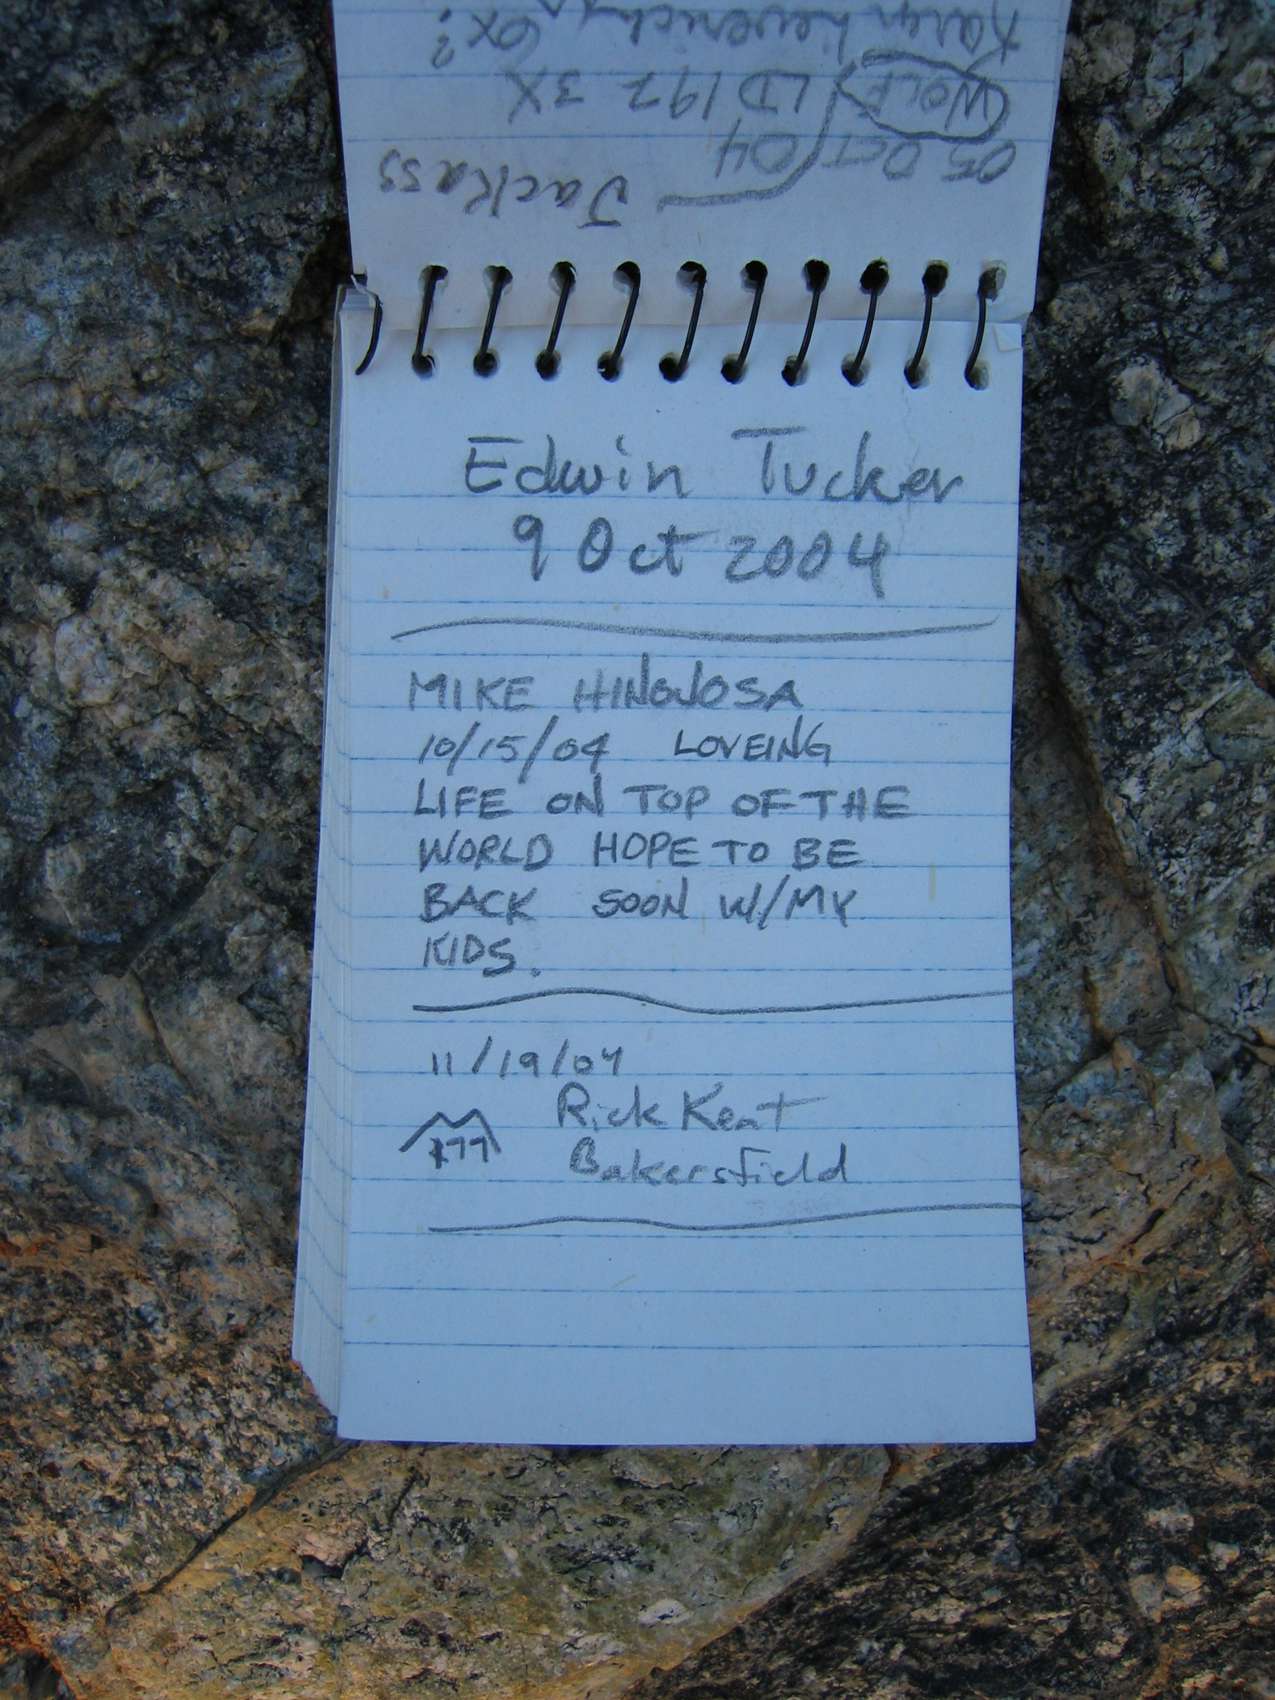 Jackass
05 Oct 04
WOLF LD 197 3X
Karyn 6x?
Edwin Tucker
9 Oct 2004
MIKE HINOJOSA
10/15/04 LOVEING
LIFE ON TOP OF THE
WORLD HOPE TO BE
BACK SOON W/MY
KIDS.
11/19/04
Rick Kent
Bakersfield